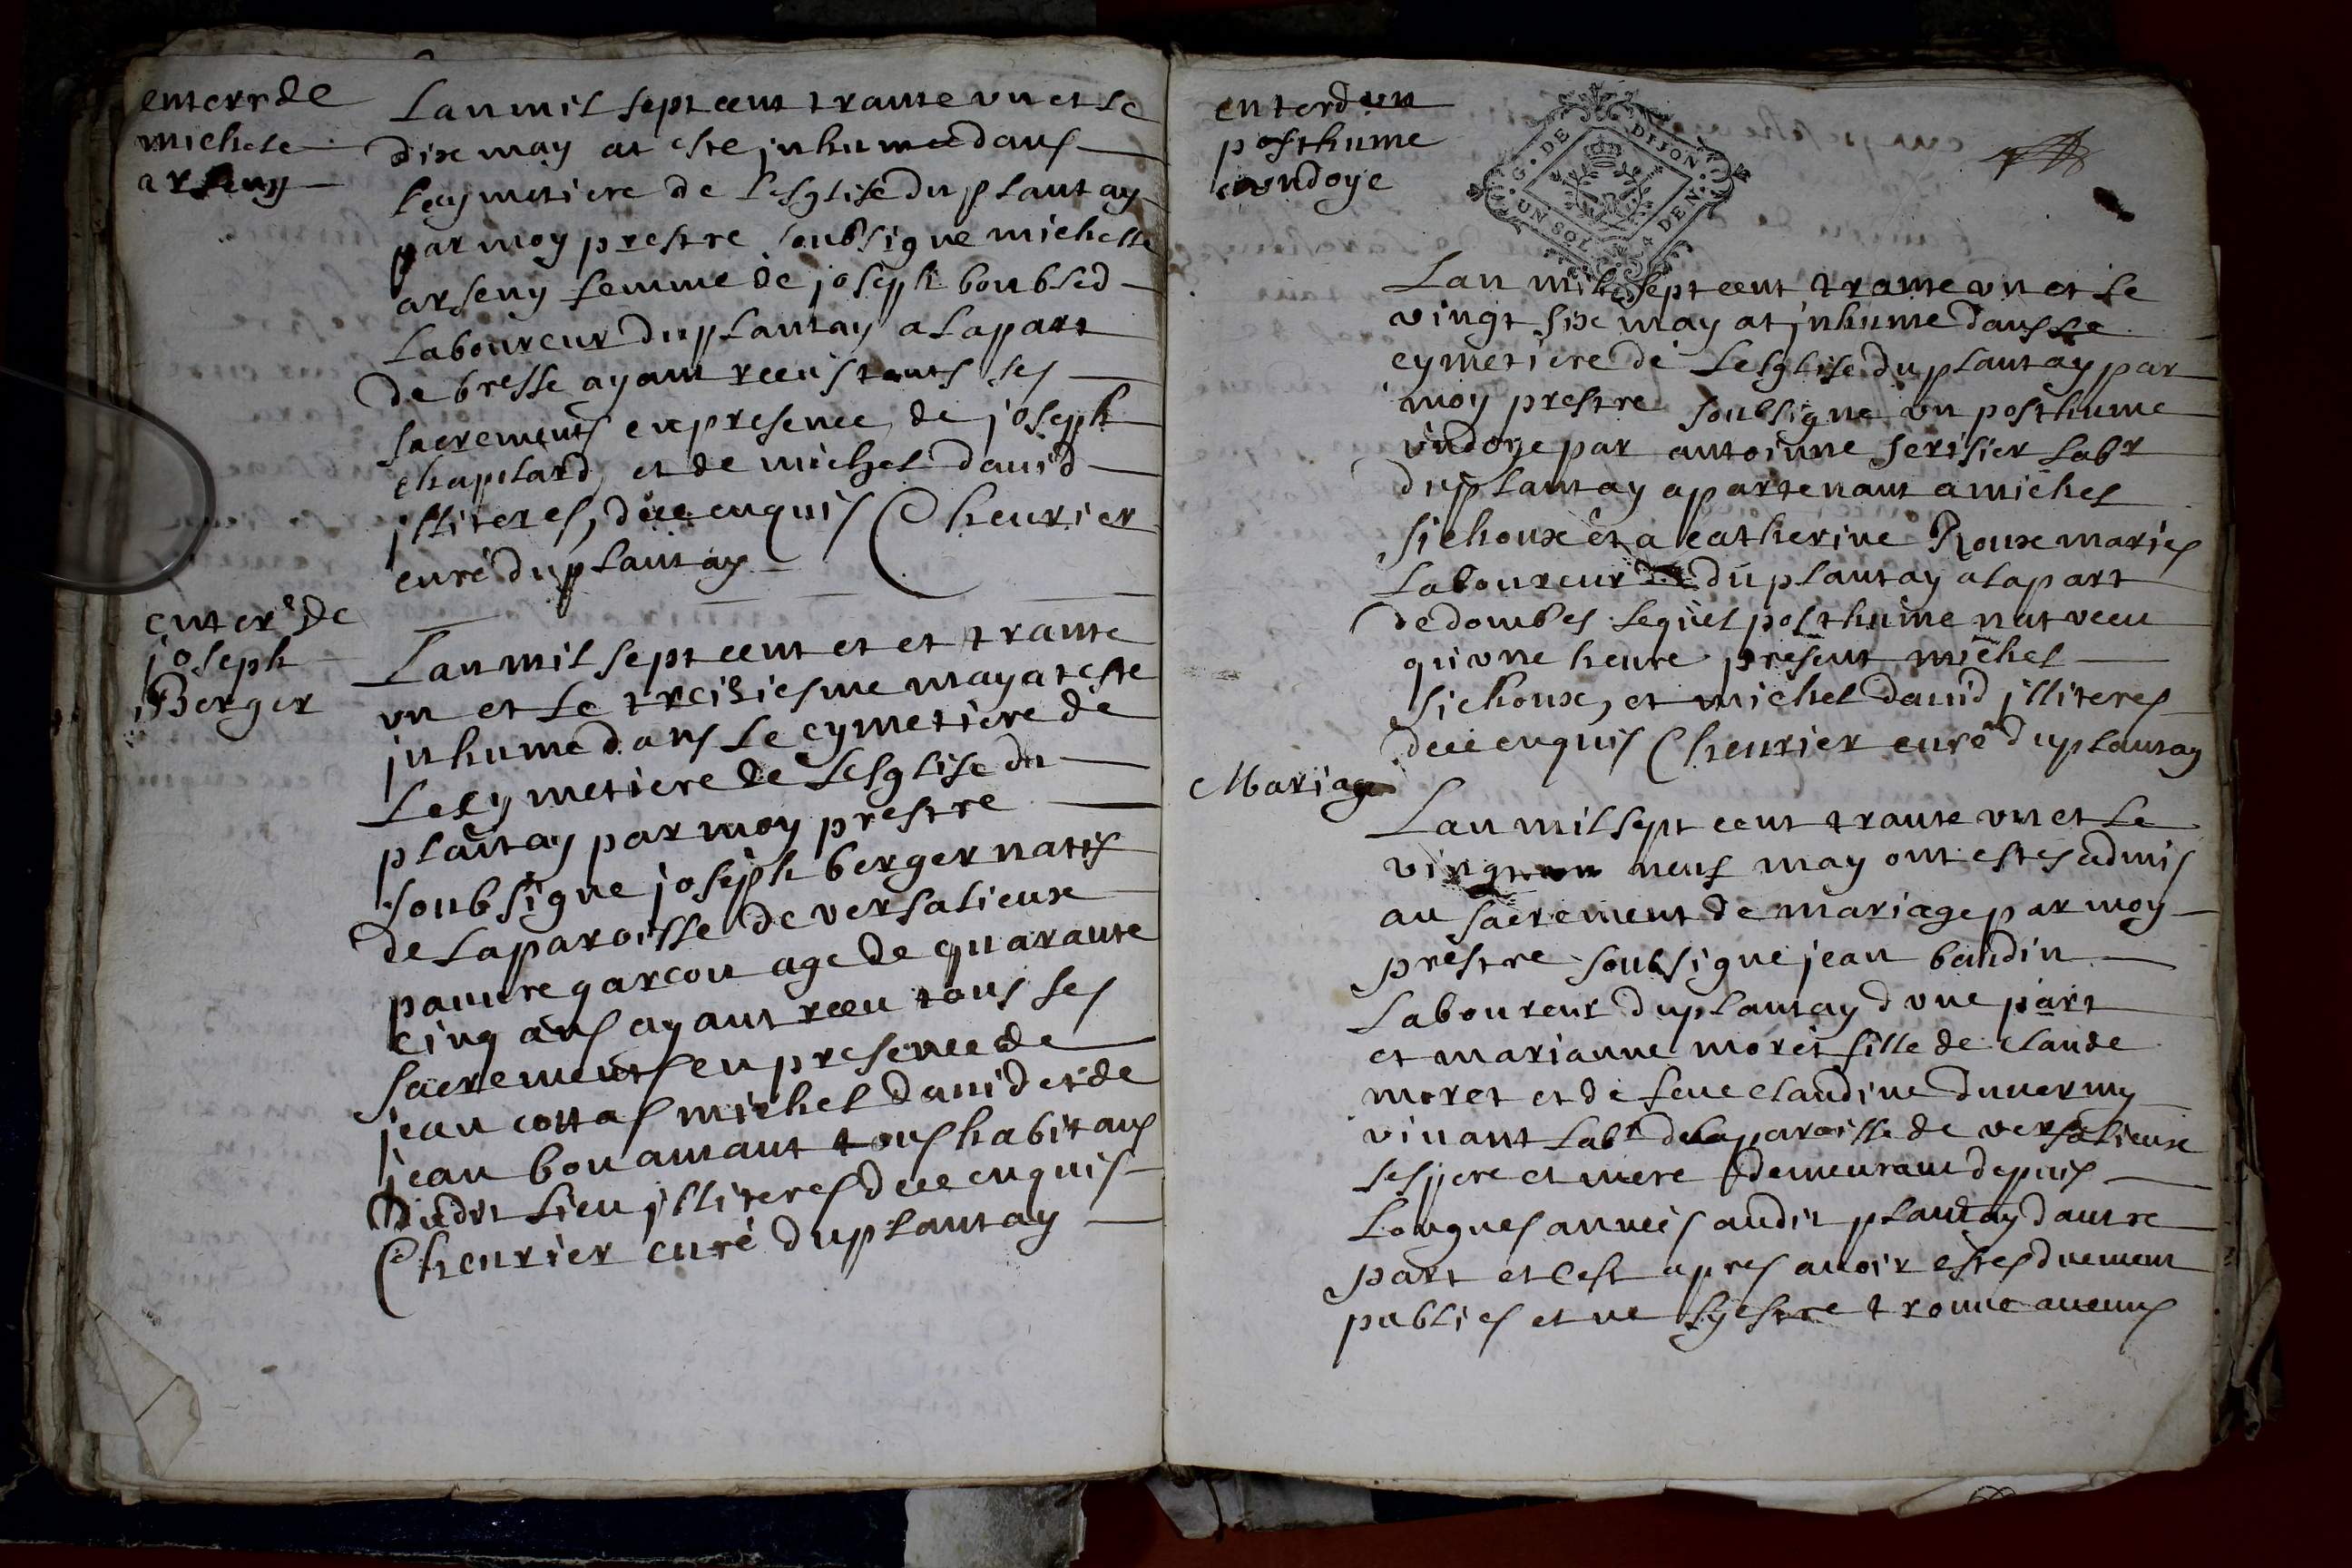 enterr de
michele
arseny
Lan mil sept cent trante vn et le
dixe may at este jnhumee dans
le cymetiere de l'esglise du plantay
par moy prestre soubsigne michelle
arseny femme de joseph boubled
laboureur du plantay a la part
de bresse ayant receus touts ses
sacrements en presence de joseph
chapilard et de michel dauid
jlliteres, deüe enquis Cheurier
curé du plantay
enterr de
joseph
Berger
Lan mil sept cent et et trante
vn et le treisiesme may at este
jnhume dans le cymetiere de
le cymetiere de lesglise du
plantay par moy prestre
soubsigne joseph berger natif
de la paroisse de versalieux
pauure garcon age de quarante
cinq ans ayant receu tous ses
sacrements en presence de
jean cottas michel dauid et de
jean bonamant tous habitans
dudit lieu jlliteres deüe enquis
Cheurier curé du plantay
enter dun
posthume
ondoye
G. DE DIJON
UN SOL 4 DEN.
Lan mil sept cent trante vn et le
vingt sixe may at jnhume dans le
cymetiere de lesglise du plantay par
moy prestre soubsigne vn posthume
ondoye par antoinne serisier labr
du plantay apartenant a michel
sichoux et a catherine Roux maries
laboureur du plantay a la part
de dombes lequel posthume nat vecu
qu vne heure present michel
sichoux, et michel dauid jlliteres
deüe enquis Cheurier curé du plantay
Mariage
Lan mil sept cent trante vn et le
vingt neuf may ont estes admis
au sacrement de mariage par moy
prestre soubsigne jean baudin
laboureur du plantay d vne part
et marianne moret fille de claude
moret et de feue claudine duuerny
viuant labr de la paroisse de versalieux
ses pere et mere demeurant depuis
longues annees audit plantay dautre
part et cest apres auoir estes duement
publies et ne sy estre trouue aucuns